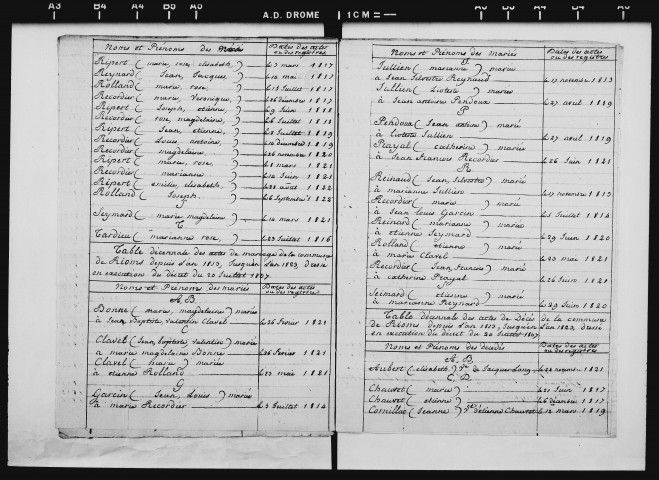 A3 B4 A4 B5 A5 A.D. DROME 1 CM A5 B5 A4 B4 A3
Noms et Prénoms des nés Dates des actes ou des registres
Ripert ( marie, rose, elisabeth, ) le 7 mars 1817
Reynard ( Jean, Jacques, ) le 12 mai 1817
Rolland ( marie, rose, ) le 18 Juillet 1817
Recordier ( marie, Veronique, ) le 26 décembre 1817
Ripert ( Joseph, etienne, ) le 9 Juin 1818
Recordier ( rose, magdelaine, ) le 6 Juillet 1818
Ripert ( Jean, etienne, ) le 8 Juillet 1819
Recordier ( Louis, antoine, ) le 12 décembre 1819
Recordier ( magdelaine, ) le 26 novembre 1820
Ripert ( marie, rose, ) le 1 mars 1821
Recordier ( marianne ) le 12 Juin 1821
Ripert ( emilie, elisabeth, ) le 28 août 1822
Rolland ( Joseph, ) le 16 Septembre 1822
S
Seymard ( marie magdelaine ) le 12 mars 1821
T
Tardieu ( marianne rose, ) le 23 Juillet 1816
Table décennale des actes de mariage de la commune
de Rioms depuis l'an 1813, Jusques l'an 1823, Dressé
en execution du décret du 20 Juillet 1807.
Noms et Prénoms des mariés Dates des actes ou des registres
A, B
Bonne ( marie, magdelaine ) mariée
à Jean, Baptiste, Valentin Clavel le 26 Fevrier 1821
C
Clavel ( Jean, baptiste, Valentin ) marié
à marie magdelaine Bonne le 26 Février 1821
Clavel ( marie ) mariée
à etienne Rolland le 23 mai 1821
G
Garcin ( Jean, Louis ) marié
à marie Recordier le 3 Juillet 1814
Noms et Prénoms des mariés Dates des actes ou des registres
J
Jullien ( marianne ) mariée
à Jean Silvestre Reynaud le 17 novembre 1813
Jullien ( ) mariée
à Jean antoine Pendoux le 27 avril 1819
P
Pendoux ( Jean antoine ) marié
à Jullien le 27 avril 1819
Prayal ( catherine ) mariée
à Jean Francois Recordier le 26 Juin 1821
R
Reinaud ( Jean, Silvestre ) marié
à marianne Jullien le 17 novembre 1813
Recordier ( marie ) mariée
à Jean Louis Garcin le 3 Juillet 1814
Reinard ( marianne ) mariée
à etienne Seymard le 29 Juin 1820
Rolland ( etienne ) marié
à marie Clavel le 23 mai 1821
Recordier ( Jean, Francois ) marié
à catherine Prayal le 26 Juin 1821
S
Seimard ( etienne ) marié
à marianne Reynard le 29 Juin 1820
Table décennale des actes de Décès de la commune
de Rioms depuis l'an 1813, Jusqu'en l'an 1823, dressé
en execution du décret du 20 Juillet 1807.
Noms et Prénoms des decédés Dates des actes ou des registres
A, B
Aubert ( elisabeth ) Ve de Jacques Long le 22 1821
C, D
Chauvet ( marie ) le 21 Juin 1817
Chauvet ( etienne ) le 6 décembre 1817
Cornillac ( Jeanne ) Ve d'etienne Chauvet le 12 mars 1819